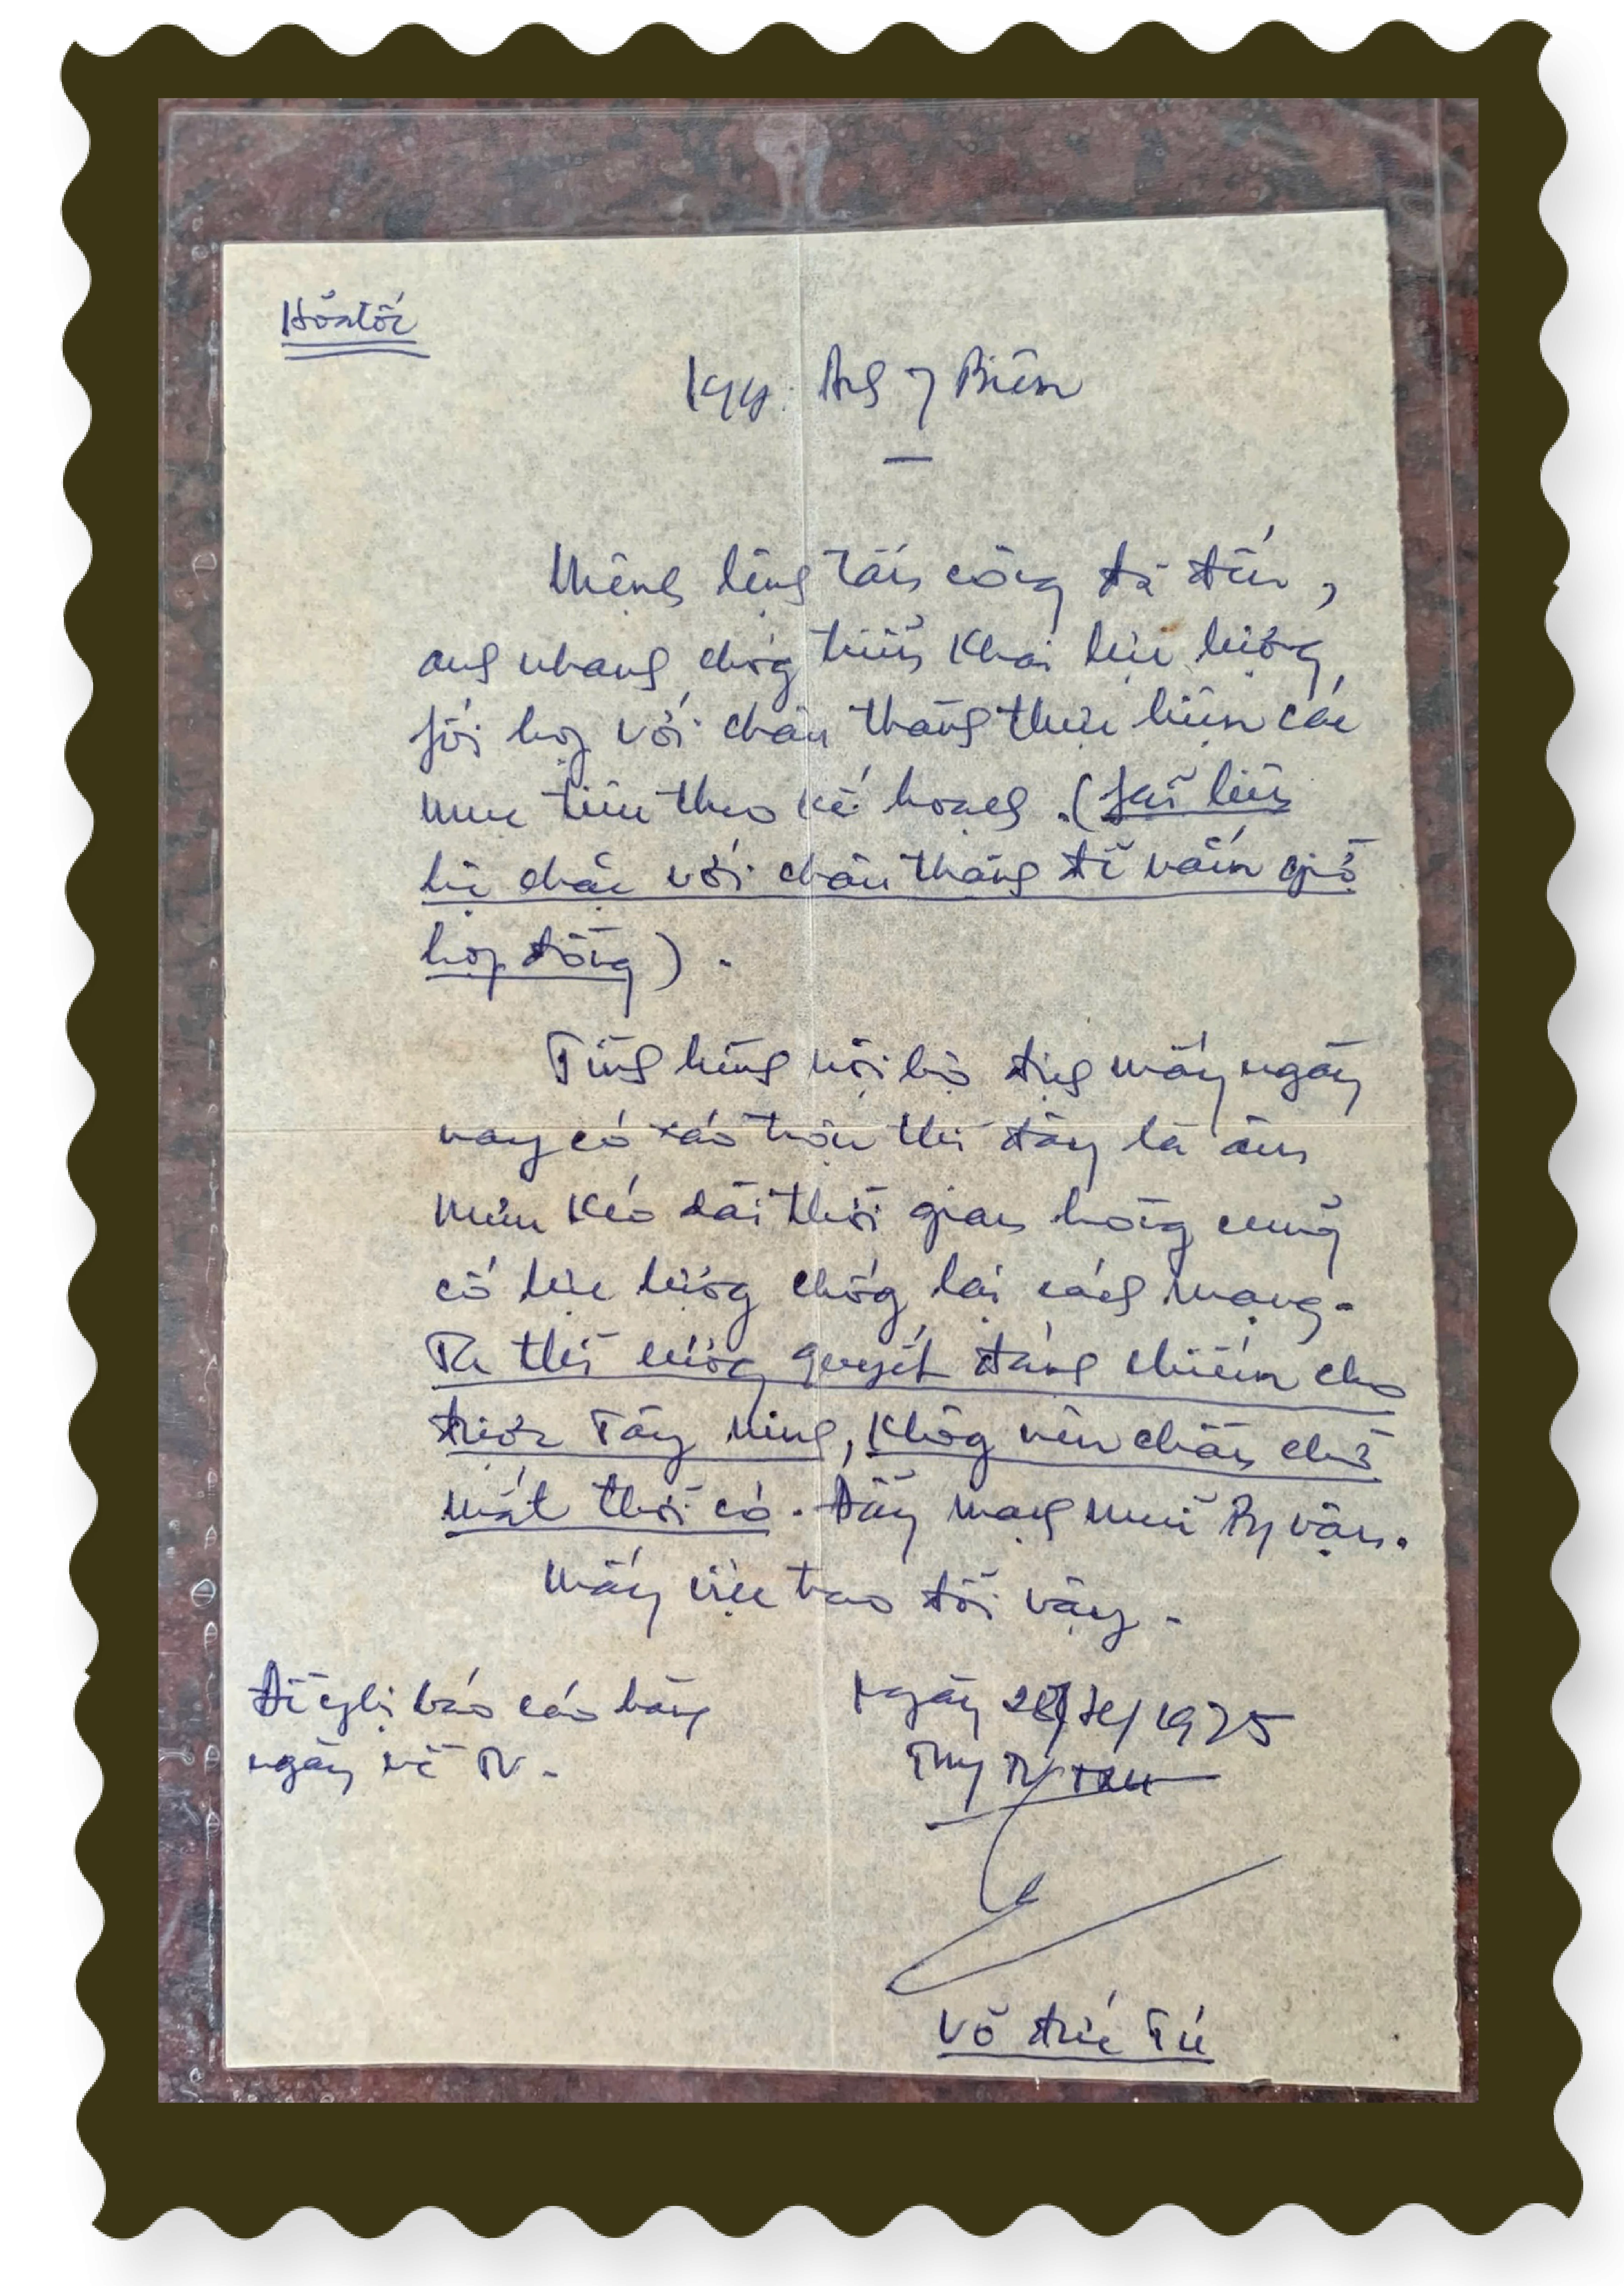 Hỏa tốc
Kgy: Anh 7 Biên
Mệnh lệnh tấn công đã đến,
anh nhanh chóng triển khai lực lượng
phối hợp với châu thành thực hiện các
mục tiêu theo kế hoạch. (phải liên
lạc chặt với châu thành để nắm giờ
hợp đồng).
Tình hình nội bộ địch mấy ngày
nay có xáo trộn thì đây là âm
mưu kéo dài thời gian hòng củng
cố lực lượng chống lại cách mạng.
Ta thì cương quyết đánh chiếm cho
được Tây Ninh, không nên chần chờ
mất thời cơ. Đẩy mạnh mũi binh vận.
Mấy việc trao đổi vậy.
Đề nghị báo cáo hàng
ngày về TV.
Ngày 28/4/1975
TM/
Võ Đức Tú